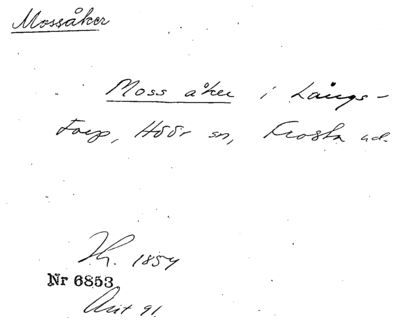 Mossåker
Moss åker i Långs-
torp, Höör sn, Frosta hd.
Th. 1854
Nr 6853
Avit 91.